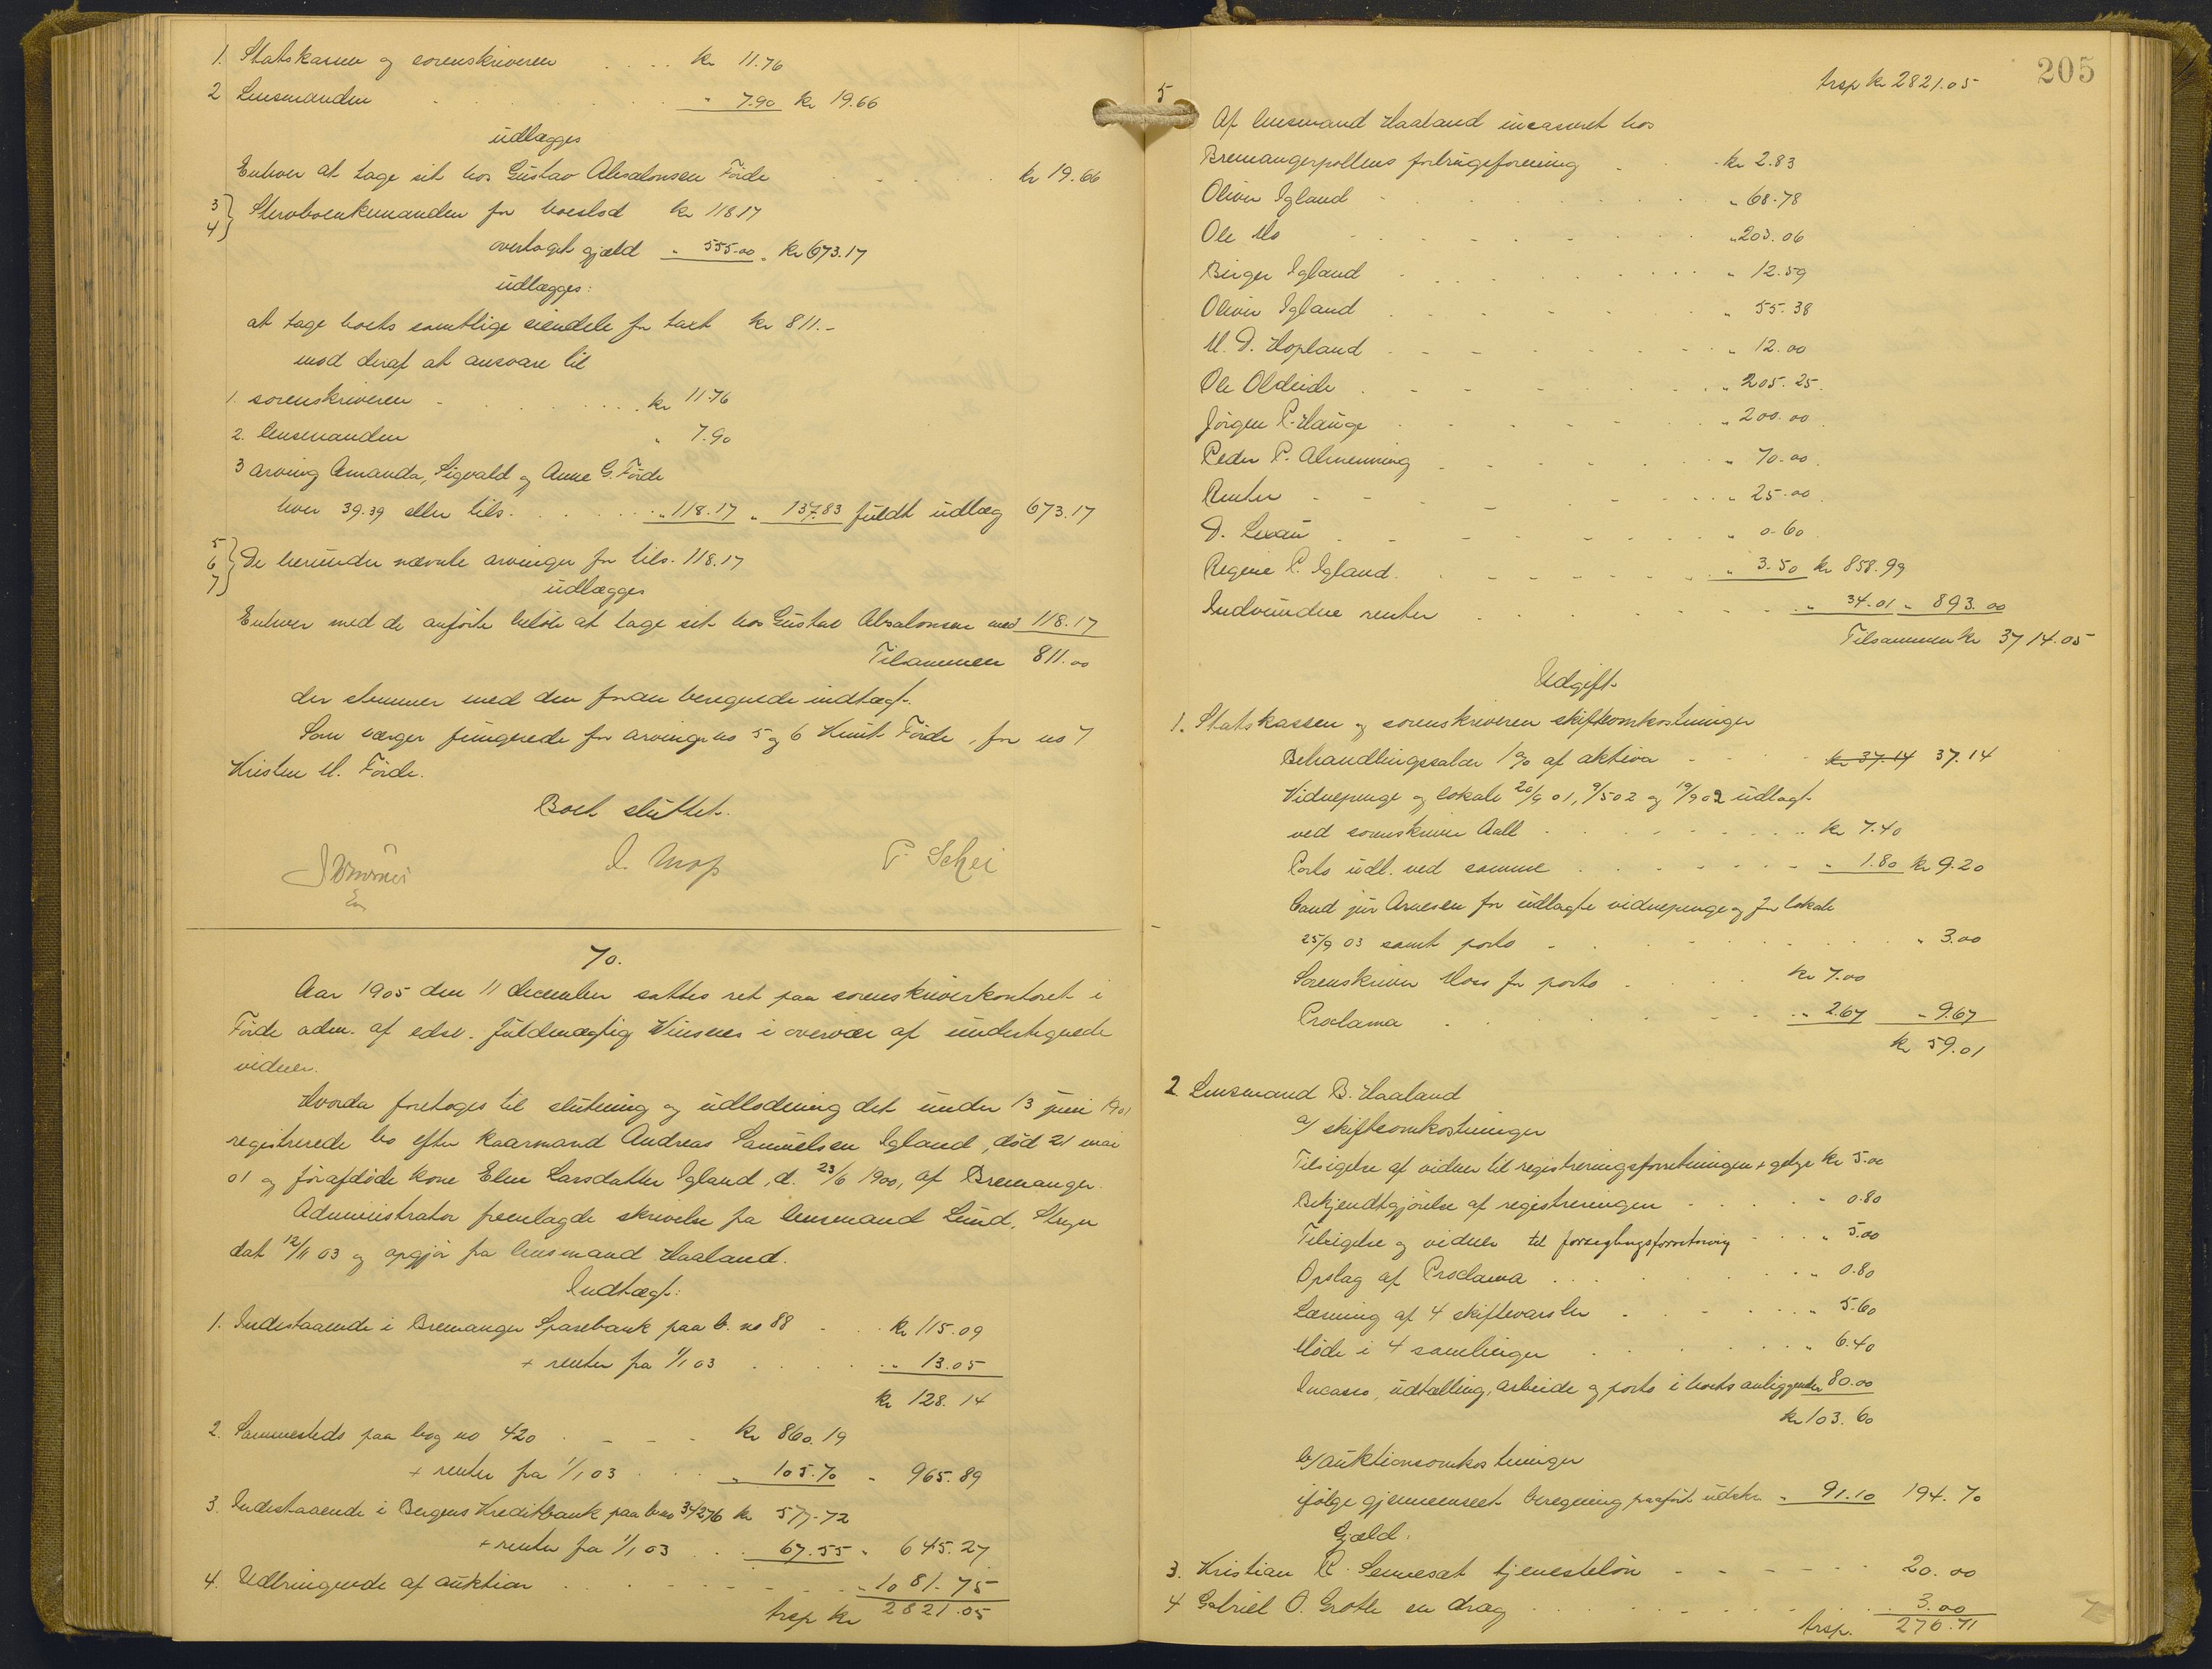 1. Statskassen og sorenskriveren . . . . kr 11.76
2 Lensmanden . . . . " 7.90 kr 19.66
udlægges
Enhver at tage sit hos Gustav Absalonsen Förde . . . . kr 19.66
3 4} Stervboenkemanden for boeslod kr 118.17
overtaget gjæld " 555.00 " kr 673.17
udlægges:
at tage boets samtlige eiendele for taxt kr 811.-
mod deraf at ansvare til
1. sorenskriveren . . . . kr 11.76
2. lensmanden " 7.90
3 arving Amanda, Sigvald og Anne G. Förde
hver 39.39 eller tils. . . . . " 118.17 " 137.83 fuldt udlæg 673.17
5 6 7} De herunder nævnte arvinger for tils. 118.17
udlægges
Enhver med de anförte belöb at tage sit hos Gustav Absalonsen med 118.17
Tilsammen 811.00
der stemmer med den foran beregnede indtægt.
Som værger fungerede for arvinge no 5 og 6 Knut Förde, for no 7
Kristen M. Förde.
Boet sluttet.
P. Schei
70.
Aar 1905 den 11 december sattes ret paa sorenskriverkontoret i
Förde adm. af edsv. fuldmægtig Vinsnes i overvær af undertegnede
vidner.
Hvorda foretoges til slutning og udlodning det under 13 juni 1901
registrerede bo efter kaarmand Andreas Samuelsen Igland, död 21 mai
01 og förafdöde kone Elen Larsdatter Igland, d. 23/6 1900, af Bremanger.
Administrator fremlagde skrivelse fra lensmand Lund, Stryn
dat 12/11 03 og opgjör fra lensmand Haaland.
Indtægt:
1. Indestaaende i Bremanger Sparebank paa b. no 88 . . . kr 115.09
+ renter fra 1/1 03 . . . . " 13.05
kr 128.14
2. Sammesteds paa bog no 420 . . . . kr 860.19
+ renter fra 1/1 03 . . . " 105.70 " 965.89
3. Indestaaende i Bergens Kreditbank paa b no 34276 kr 577.72
+ renter fra 1/1 03 . . . 67.55 " 645.27
4. Udbringende af auktion . . . . " 1081.75
trsp kr 2821.05
205
trsp kr 2821.05
5
Af lensmand Haaland incasseret hos
Bremangerpollens forbrugsforening . . kr 2.83
Oliver Igland . . . . " 68.78
Ole Mo . . . . " 203.06
Birger Igland . . . . " 12.59
Oliver Igland . . . . " 55.38
M. D. Hopland . . . . " 12.00
Ole Oldeide . . . . " 205.25
Jörgen P. Hauge . . . . " 200.00
Peder P. Almenning . . . . " 70.00
Renter . . . . " 25.00
D. Lexau . . . . " 0.60
Regine P. Igland . . . . " 3.50 kr 858.99
Indvundne renter . . . . " 34.01 " 893.00
Tilsammen kr 3714.05
Udgift.
1. Statskassen og sorenskriveren skifteomkostninger
Behandlingssalær 1% af aktiva . . kr 37.14 37.14
Vidnepenge og lokale 20/9 01, 9/5 02 og 19/9 02 udlagt
ved sorenskriver Aall . . . . kr 7.40
Porto udl. ved samme . . . . " 1.80 kr 9.20
Cand jur Arnesen for udlagte vidnepenge og for lokale
25/9 03 samt porto . . . . " 3.00
Sorenskriver Moss for porto . . . kr 7.00
Proclama . . . . " 2.67 " 9.67
kr 59.01
2 Lensmand B. Haaland
a/ skifteomkostninger
Tilsigelse af vidner til registreringsforretningen + gebyr kr 5.00
Bekjendtgjörelse af registreringen . . . " 0.80
Tilsigelse og vidner til forseglingsforretning . . . " 5.00
Opslag af Proclama . . . . " 0.80
Læsning af 4 skiftevarsler . . . . " 5.60
Möde i 4 samlinger . . . . " 6.40
Incasso, udtælling, arbeide og porto i boets anliggender 80.00
kr 103.60
b/ auktionsomkostninger
ifölge gjennemseet beregning paafört udskr. " 91.10 194.70
Gjæld.
3. Kristian R. Sennesæt tjenestelön . . . . 20.00
4 Gabriel O. Grotle en drag . . . . 3.00
trsp. 276.71